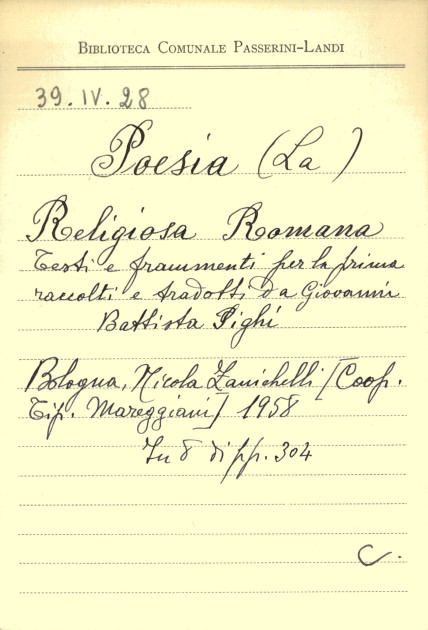 BIBLIOTECA COMUNALE PASSERINI-LANDI
39.IV.28
Poesia (La)
Religiosa Romana
Testi e frammenti per la prima
raccolti e tradotti da Giovanni
Battista Pighi
Bologna, Nicola Zanichelli [Coop.
Tip. Mareggiani] 1958
In 8 di pp. 304
C.